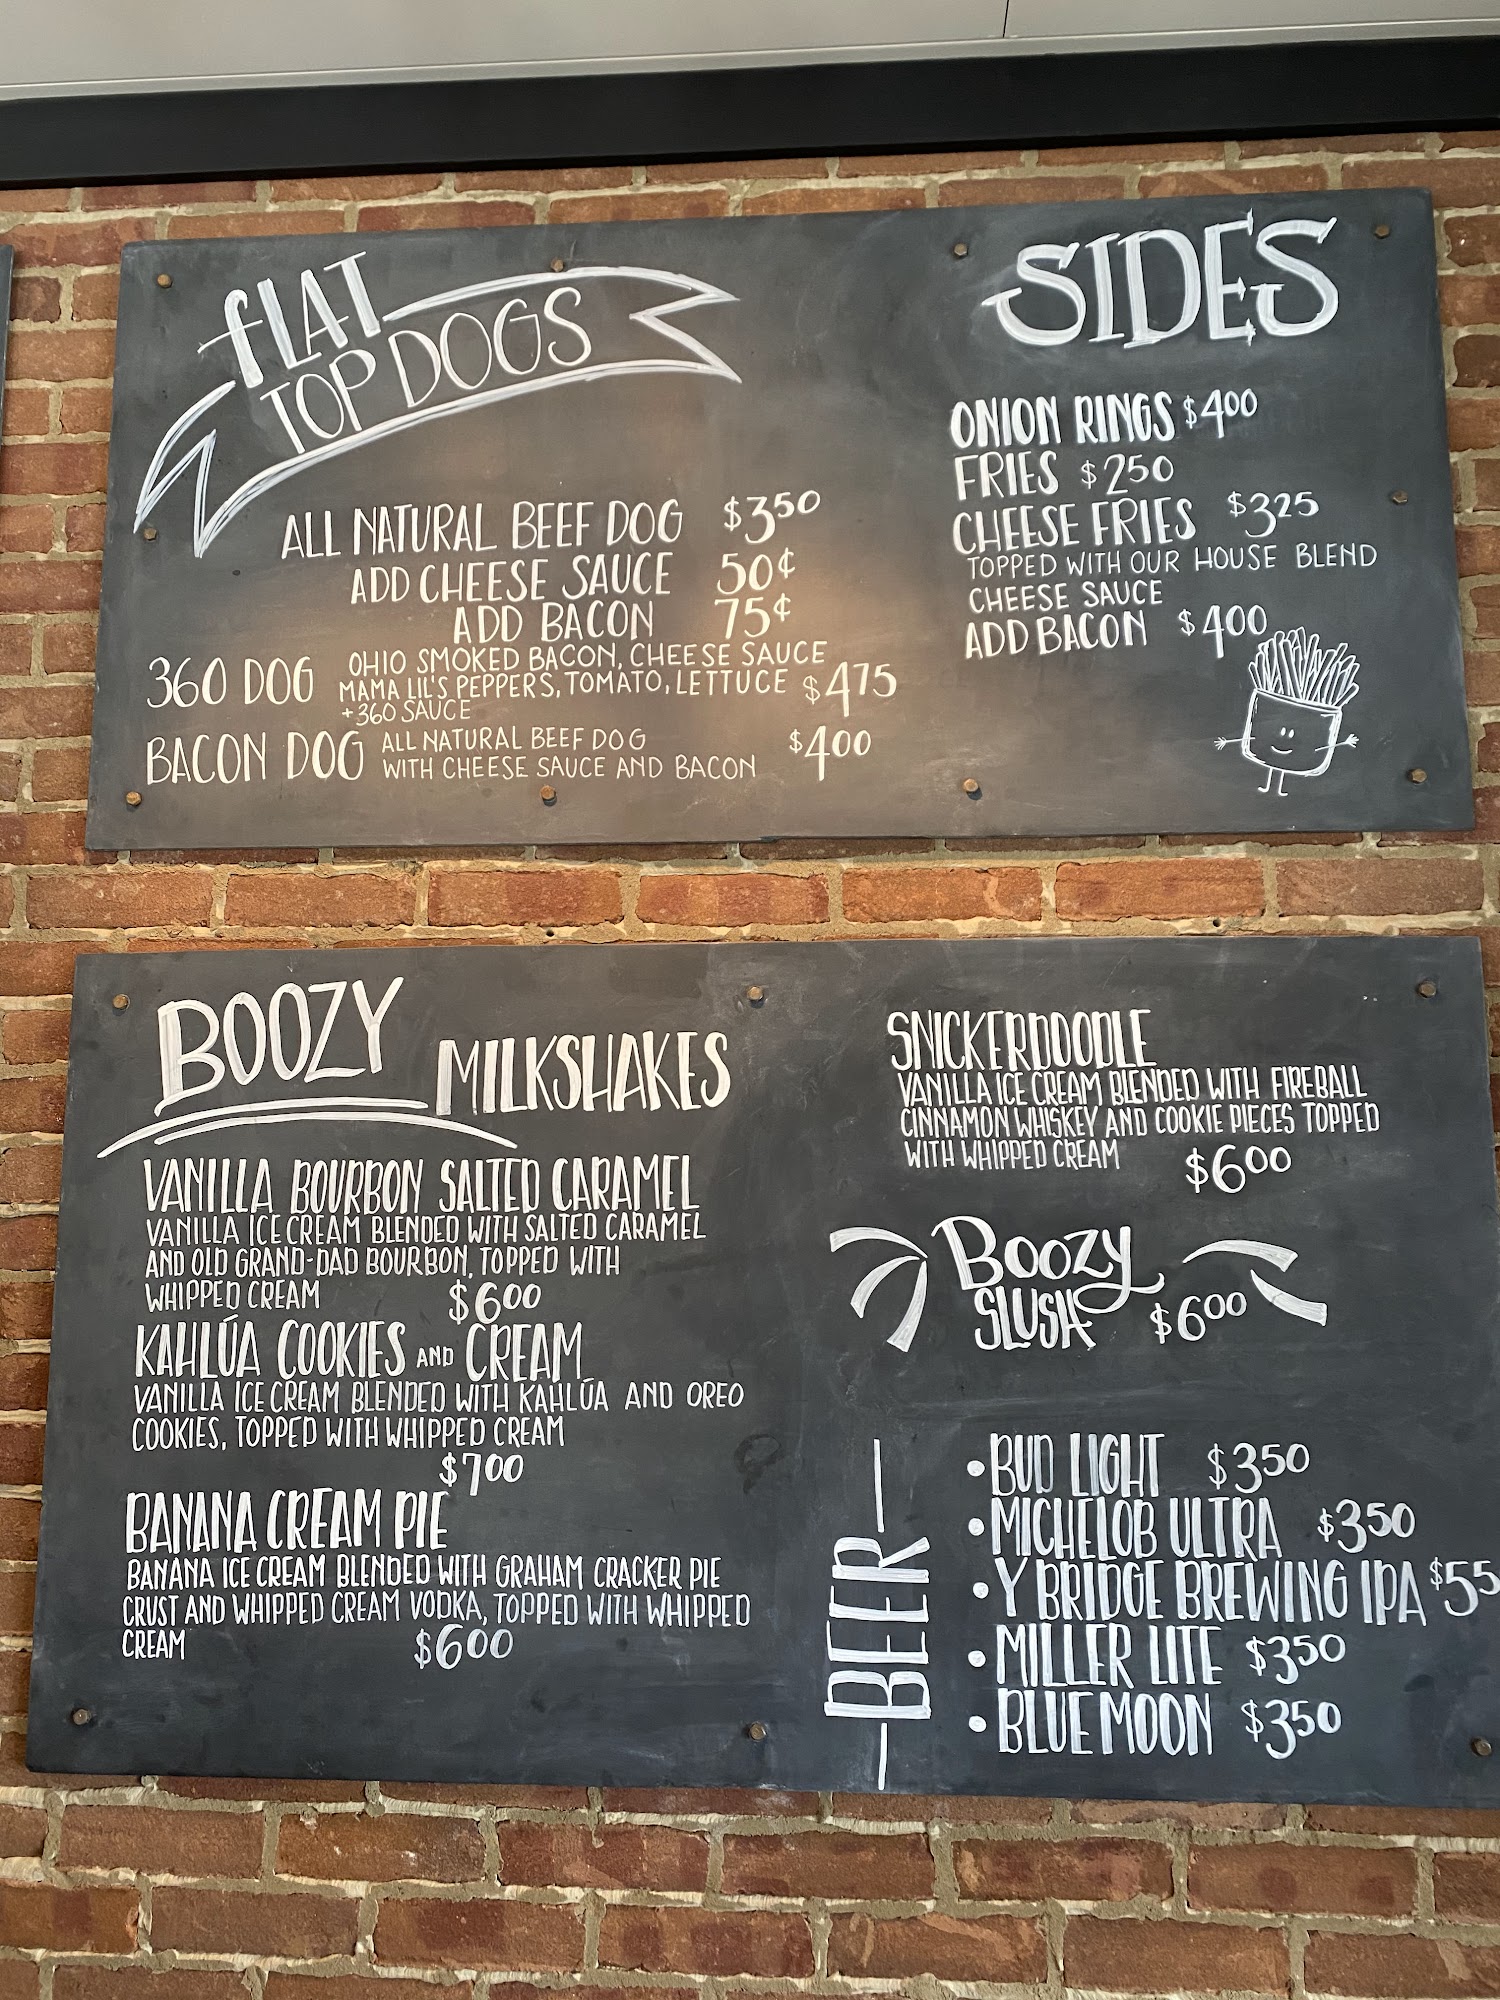 FLAT
TOP DOGS
ALL NATURAL BEEF DOG $350
ADD CHEESE SAUCE 50¢
ADD BACON 75¢
360 DOG OHIO SMOKED BACON, CHEESE SAUCE
MAMA LIL'S PEPPERS, TOMATO, LETTUCE $475
+360 SAUCE
BACON DOG ALL NATURAL BEEF DOG $400
WITH CHEESE SAUCE AND BACON
SIDES
ONION RINGS $400
FRIES $250
CHEESE FRIES $325
TOPPED WITH OUR HOUSE BLEND
CHEESE SAUCE
ADD BACON $400
BOOZY MILKSHAKES
VANILLA BOURBON SALTED CARAMEL
VANILLA ICE CREAM BLENDED WITH SALTED CARAMEL
AND OLD GRAND-DAD BOURBON, TOPPED WITH
WHIPPED CREAM $600
KAHLÚA COOKIES AND CREAM
VANILLA ICE CREAM BLENDED WITH KAHLÚA AND OREO
COOKIES, TOPPED WITH WHIPPED CREAM
$700
BANANA CREAM PIE
BANANA ICE CREAM BLENDED WITH GRAHAM CRACKER PIE
CRUST AND WHIPPED CREAM VODKA, TOPPED WITH WHIPPED
CREAM $600
SNICKERDOODLE
VANILLA ICE CREAM BLENDED WITH FIREBALL
CINNAMON WHISKEY AND COOKIE PIECES TOPPED
WITH WHIPPED CREAM $600
BOOZY
SLUSH $600
BEER
• BUD LIGHT $350
• MICHELOB ULTRA $350
• Y BRIDGE BREWING IPA $55
• MILLER LITE $350
• BLUE MOON $350